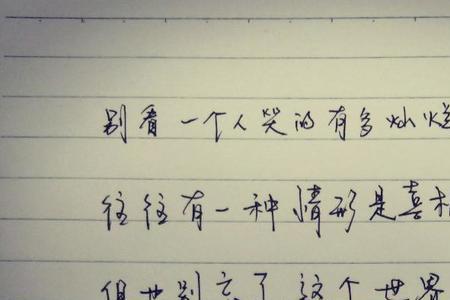 别看一个人笑的有多灿烂
往往有一种情形是喜极
但也别忘了这个世界